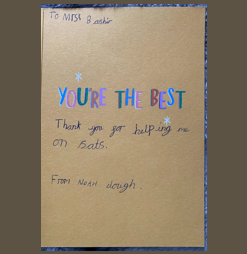 To MISS Bashir
YOU'RE THE BEST
Thank you for helping me
on Sats.
From NOAH dough.